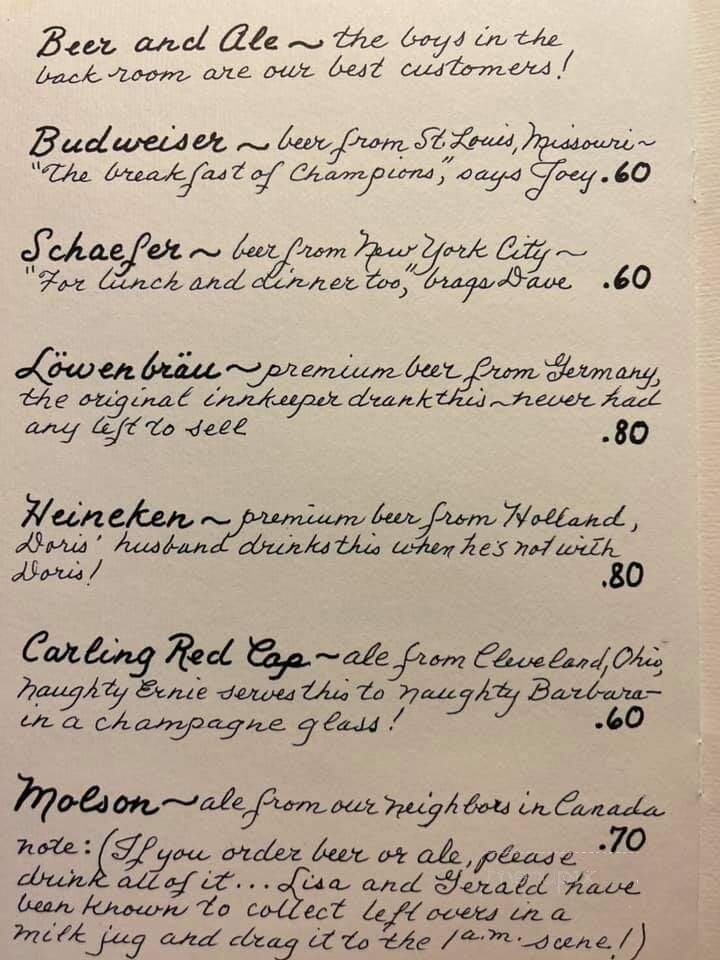 Beer and Ale ~ the boys in the
back room are our best customers!
Budweiser ~ beer from St. Louis, Missouri ~
"The breakfast of Champions," says Joey .60
Schaefer ~ beer from New York City ~
"For lunch and dinner too," brags Dave .60
Löwenbräu ~ premium beer from Germany,
the original innkeeper drank this ~ never had
any left to sell .80
Heineken ~ premium beer from Holland,
Doris' husband drinks this when he's not with
Doris! .80
Carling Red Cap ~ ale from Cleveland, Ohio,
Naughty Ernie serves this to Naughty Barbara -
in a champagne glass! .60
Molson ~ ale from our neighbors in Canada
.70
note: (If you order beer or ale, please
drink all of it... Lisa and Gerald have
been known to collect leftovers in a
milk jug and drag it to the 1 a.m. scene!)